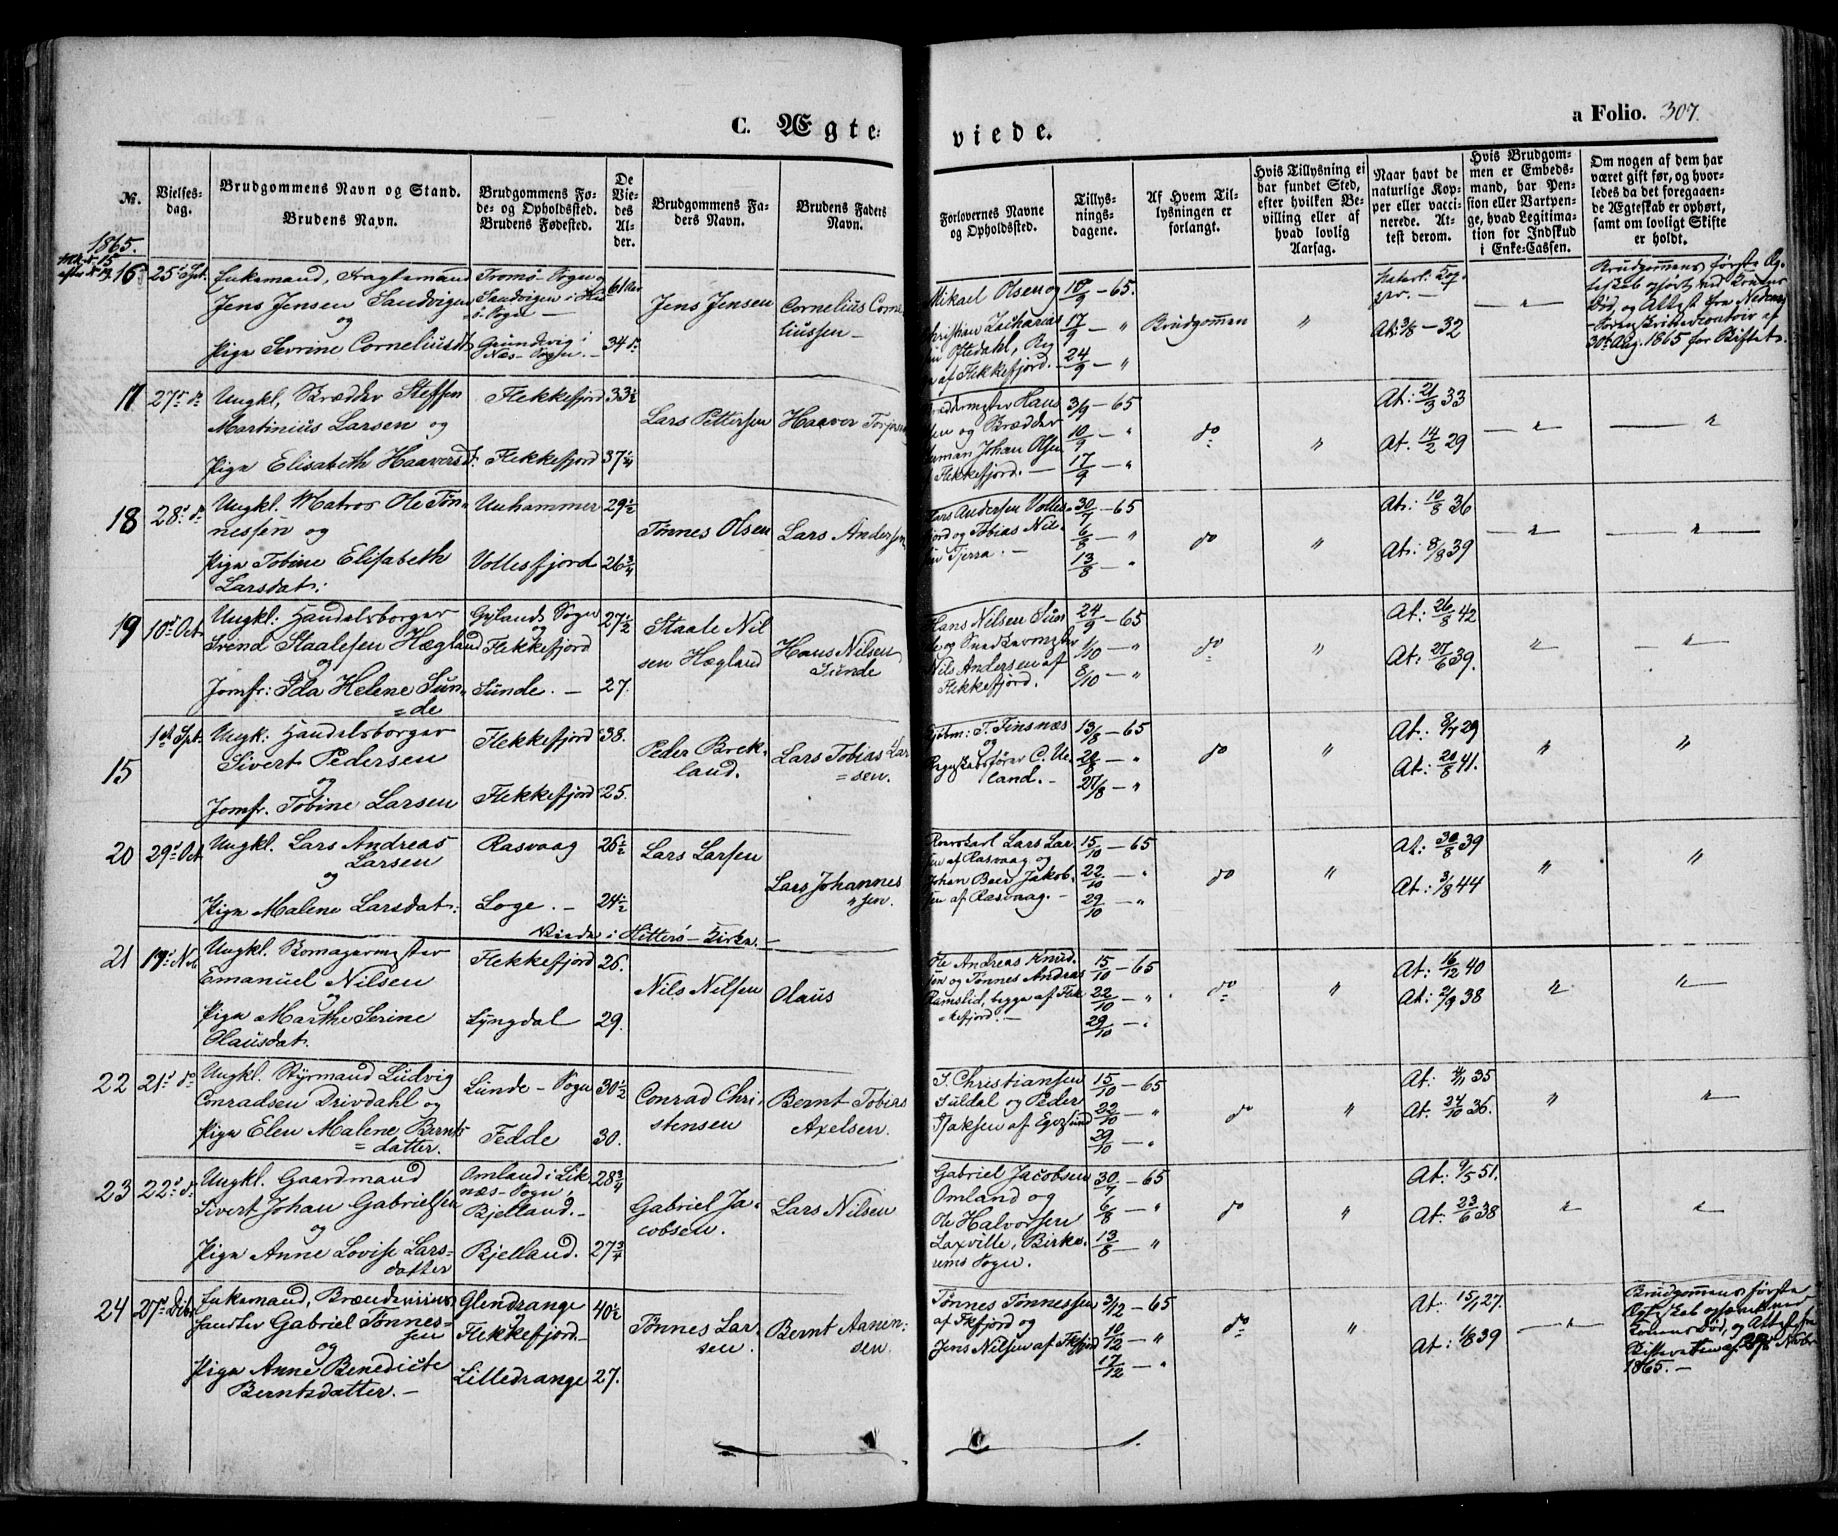 C. Ægte-
viede.
a Folio. 307.
№.
Vielses-
dag.
Brudgommens Navn og Stand.
Brudens Navn.
Brudgommens Fø-
de- og Opholdssted.
Brudens Fødested.
De
Vie-
des
Al-
der.
Brudgommens Fa-
ders Navn.
Brudens Faders
Navn.
Forlovernes Navne
og Opholdssted.
Tillys-
nings-
dagene.
Af Hvem Til-
lysningen er
forlangt.
Hvis Tillysning ei
har fundet Sted,
efter hvilken Be-
villing eller af
hvad lovlig
Aarsag.
Naar havt de
naturlige Kop-
per eller vacci-
nerede. At-
test derom.
Hvis Brudgom-
men er Embeds-
mand, har Pen-
sion eller Vartpen-
ge, hvad Legitima-
tion for Indskud
i Enke-Cassen.
Om nogen af dem har
været gift før, og hvor-
ledes da det foregaaen-
de Ægteskab er ophørt,
samt om lovligt Skifte
er holdt.
1865.
16
25 Spt.
Enkemand,
Jens Jensen Sandvigen
og
Pige Sevrine Corneliusdt
Tromø-Sogn og
Sandvigen i
Sogn —
Grundvig i
Næs-Sogn. —
61
34
Jens Jensen
Cornelius Corne-
liussen —
Mikael Olsen og
Zacharias
Oftedahl,
af Flekkefjord.
10/9 — 65.
17/9 — "
24/9 — "
Brudgommen
"
Naturl. Kop-
per. —
At: 3/8 — 32
— " —
Brudgommens første Æg-
teskab ophørt ved Konens
Død, og Attest fra Nedenæs
30 Aug. 1865 for Skiftet.
17
27 d°
Ungkl, Bredder Steffen
Martinius Larsen og
Pige Elisabeth Haaversd.
Flekkefjord
Flekkefjord
33 1/2
37 1/4
Lars Pettersen
Haaver Torjersen
Hans
og Bredder
Johan Olsen
Flekkefjord. —
3/9 — 65
10/9 — "
17/9 — "
d°
"
At: 21/3 33
At. 14/2 29
— " —
— "
18
28 d°
Ungkl. Matros Ole Tøn-
nessen og
Pige Tobine Elisabeth
Larsdat:
Unhammer
Vollesfjord
29 1/2
26 3/4
Tønnes Olsen
Lars Andersen
Lars Andersen Volles-
fjord og Tobias Nil-
sen Tjerra. —
30/7 — 65
6/8 — "
13/8 — "
d°
"
At: 10/8 36
At: 8/8 39
— " —
— " —
19
10 Oct
Ungkl: Handelsborger
Svend Staalesen Hægland
og
Jomfr: Ida Helene Sun-
=de
Gylands Sogn
og
Flekkefjord
Sunde. —
27 1/2
27.
Staale Nil
sen Hægland
Hans Nilsen
Sunde
Hans Nilsen Sun-
de og Snedkermester
Nils Andersen af
Flekkefjord.
24/9 — 65
1/10 — "
8/10 — "
d°
"
At: 26/8 42
At: 27/6 39.
"
— " —
15
1st Spt.
Ungk: Handelsborger
Sivert Pedersen
og
Jomfr. Tobine Larsen
Flekkefjord
Flekkefjord
38.
25.
Peder Brek-
land.
Lars Tobias Lar
=sen.
T. Tinsnæs
og
C. Ue-
land. —
13/8 — 65
20/8 — "
27/8 — "
d°
"
At: 8/7 29
At: 20/8 41.
"
"
20
29 Oct
Ungkl. Lars Andreas
Larsen
og
Pige Malene Larsdat:
Rasvaag
Loge. —
26 1/2
24 1/2
Lars Larsen
Lars Johannes
"sen.
Lars Lar-
sen af Rasvaag og
Johan Beer Jakob-
sen af Rasvaag. —
15/10 — 65
22/10 — "
29/10 — "
d°
"
At: 30/8 39
At: 3/8 44
"
"
Viede i Hitterø-Kirke. —
21
19 Nov
Ungkl. Skomagermester
Emanuel Nilsen
og
Pige Marthe Serine
Olausdat.
Flekkefjord
Lyngdal
26.
29.
Nils Nilsen
Olaus
Ole Andreas Knud-
sen og Tønnes Andreas
Ramslid, begge af Flek-
"kefjord. —
15/10 — 65
22/10 — "
29/10 — "
d°
"
At: 16/12 40
At: 2/9 38
"
— " —
22
21 d°
Ungkl. Styrmand Ludvig
Conradsen Drivdahl og
Pige Elen Malene Bernts
=datter.
Lunde-Sogn
Fedde
30 1/2
30.
Conrad Chri-
stensen
Bernt Tobias
Axelsen.
S. Christiansen
Suldal og Peder
Isaksen af Egersund
15/10 — 65
22/10 — "
29/10 — "
d°
"
At: 4/11 35
At. 24/10 36.
"
— " —
23
22 d°
Ungkl. Gaardmand
Sivert Johan Gabrielsen
og
Pige Anne Lovise Lars-
datter
Omland i Lik-
næs-Sogn,
Bjelland. —
Bjelland.
28 3/4
27 3/4
Gabriel Ja-
cobsen.
Lars Nilsen
Gabriel Jacobsen
Omland og
Ole Halvorsen
Laxville, Birke-
rems Sogn.
30/7 — 65
6/8 — "
13/8 — "
d°
"
At: 9/5 51.
At: 23/6 38
— " —
— " —
24
27 Dcbr
Enkemand, Brændeviins-
handler Gabriel Tønnes-
sen
og
Pige Anne Benedicte
Berntsdatter. —
Glendrange
og
Flekkefjord. —
Lilledrange
40 1/2
27.
Tønnes Lar-
sen.
Bernt Aanen-
sen.
Tønnes Tønnessen
af Fkfjord og
Jens Nilsen af Fkfjord
3/12 — 65
10/12 — "
17/12 — "
d°
"
At: 15/1 27.
At: 1/8 39
— " —
Brudgommens første
Ægteskab ophørt ved
Konens Død, og Attest fra
Skifteretten af Novbr
1865. —